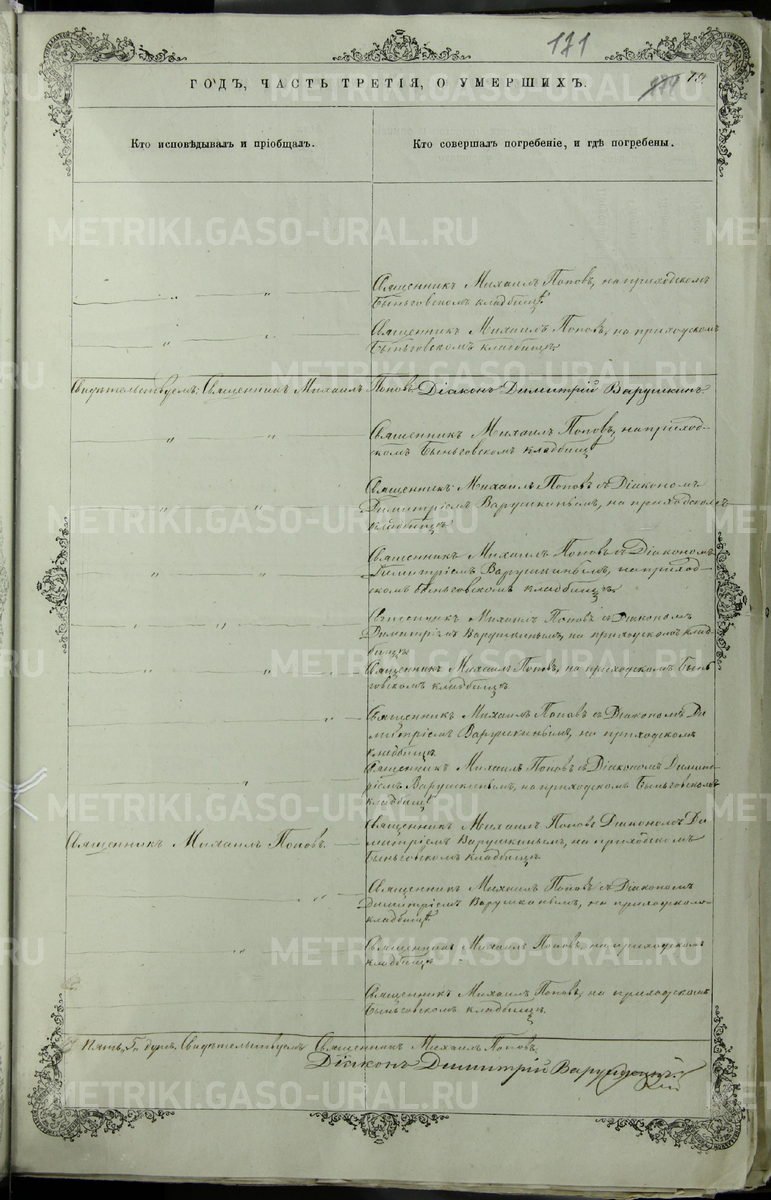 171
ГОДЪ, ЧАСТЬ ТРЕТІЯ, О УМЕРШИХЪ.
Кто исповѣдывалъ и пріобщалъ.
Кто совершалъ погребеніе, и гдѣ погребены.
Священникъ Михаилъ Поповъ, на приходскомъ
Быньговскомъ кладбищѣ.
Священникъ Михаилъ Поповъ, на приходскомъ
Быньговскомъ кладбищѣ
Свидѣтельствуемъ: Священникъ Михаилъ Поповъ Діаконъ Димитрій Варушкинъ.
Священникъ Михаилъ Поповъ, на приход-
скомъ Быньговскомъ кладбищѣ
Священникъ Михаилъ Поповъ съ Діакономъ
Димитріемъ Варушкинымъ, на приходскомъ
кладбищѣ
Священникъ Михаилъ Поповъ съ Діакономъ
Димитріемъ Варушкинымъ, на приход-
скомъ Быньговскомъ кладбищѣ
Священникъ Михаилъ Поповъ съ Діакономъ
Димитріемъ Варушкинымъ, на приходскомъ клад-
бищѣ
Священникъ Михаилъ Поповъ, на приходскомъ Бынь-
говскомъ кладбищѣ
Священникъ Михаилъ Поповъ съ Діакономъ Ди-
митріемъ Варушкинымъ, на приходскомъ
кладбищѣ
Священникъ Михаилъ Поповъ съ Діакономъ Димит-
ріемъ Варушкинымъ, на приходскомъ Быньговскомъ
кладбищѣ
Священникъ Михаилъ Поповъ.
Священникъ Михаилъ Поповъ Діакономъ Ди-
митріемъ Варушкинымъ, на приходскомъ
Быньговскомъ кладбищѣ.
Священникъ Михаилъ Поповъ съ Діакономъ
Димитріемъ Варушкинымъ, на приходскомъ
кладбищѣ.
Священникъ Михаилъ Поповъ, на приходскомъ
кладбищѣ
Священникъ Михаилъ Поповъ, на приходскомъ
Быньговскомъ кладбищѣ.
Свидѣтельствуемъ Священникъ Михаилъ Поповъ,
Діаконъ Димитрій Варушкинъ
METRIKI.GASO-URAL.RU